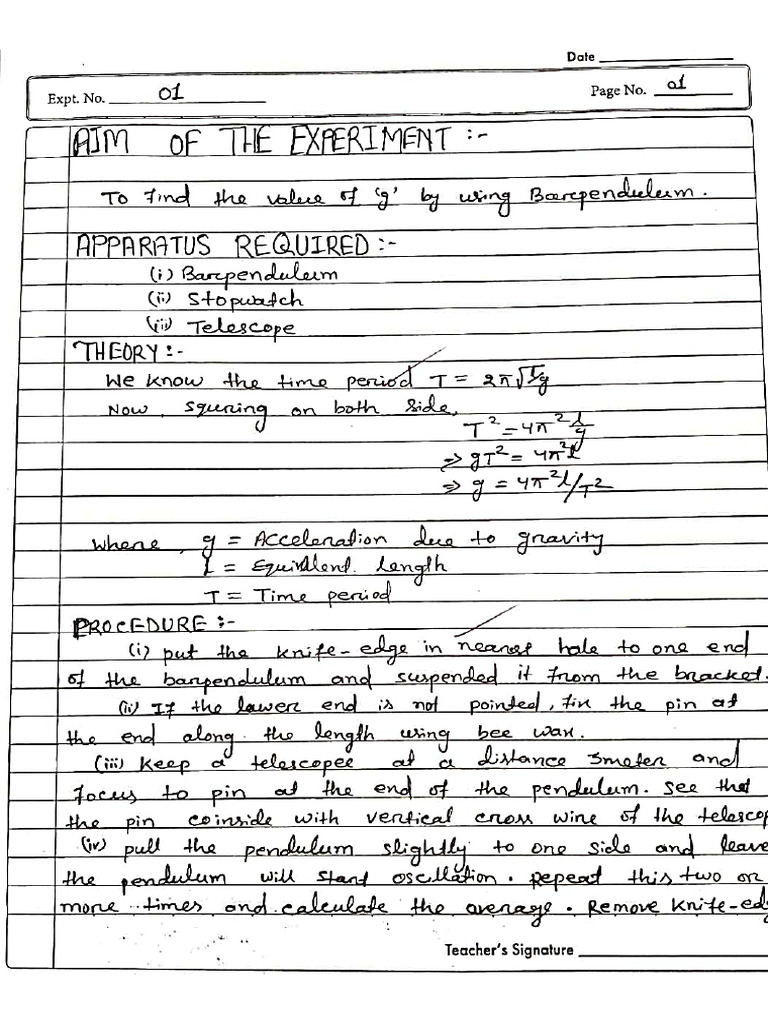 Date
Expt. No. 01
Page No. 01
AIM OF THE EXPERIMENT :-
To find the value of 'g' by using Barpendulum.
APPARATUS REQUIRED :-
(i) Barpendulum
(ii) Stopwatch
(iii) Telescope
THEORY :-
We know the time period T = 2π√l/g
Now, squring on both side,
T² = 4π² l/g
⇒ gT² = 4π²l
⇒ g = 4π²l/T²
where, g = Acceleration due to gravity
l = Equivalent length
T = Time period
PROCEDURE :-
(i) put the knife-edge in nearest hole to one end
of the barpendulum and suspended it from the bracket.
(ii) If the lower end is not pointed, fix the pin at
the end along the length using bee wax.
(iii) Keep a telescopee at a distance 3meter and
focus to pin at the end of the pendulum. See that
the pin coinside with vertical cross wire of the telescop
(iv) pull the pendulum slightly to one side and leave
the pendulum will start oscillation. Repeat this two or
more times and calculate the average. Remove knife-edg
Teacher's Signature